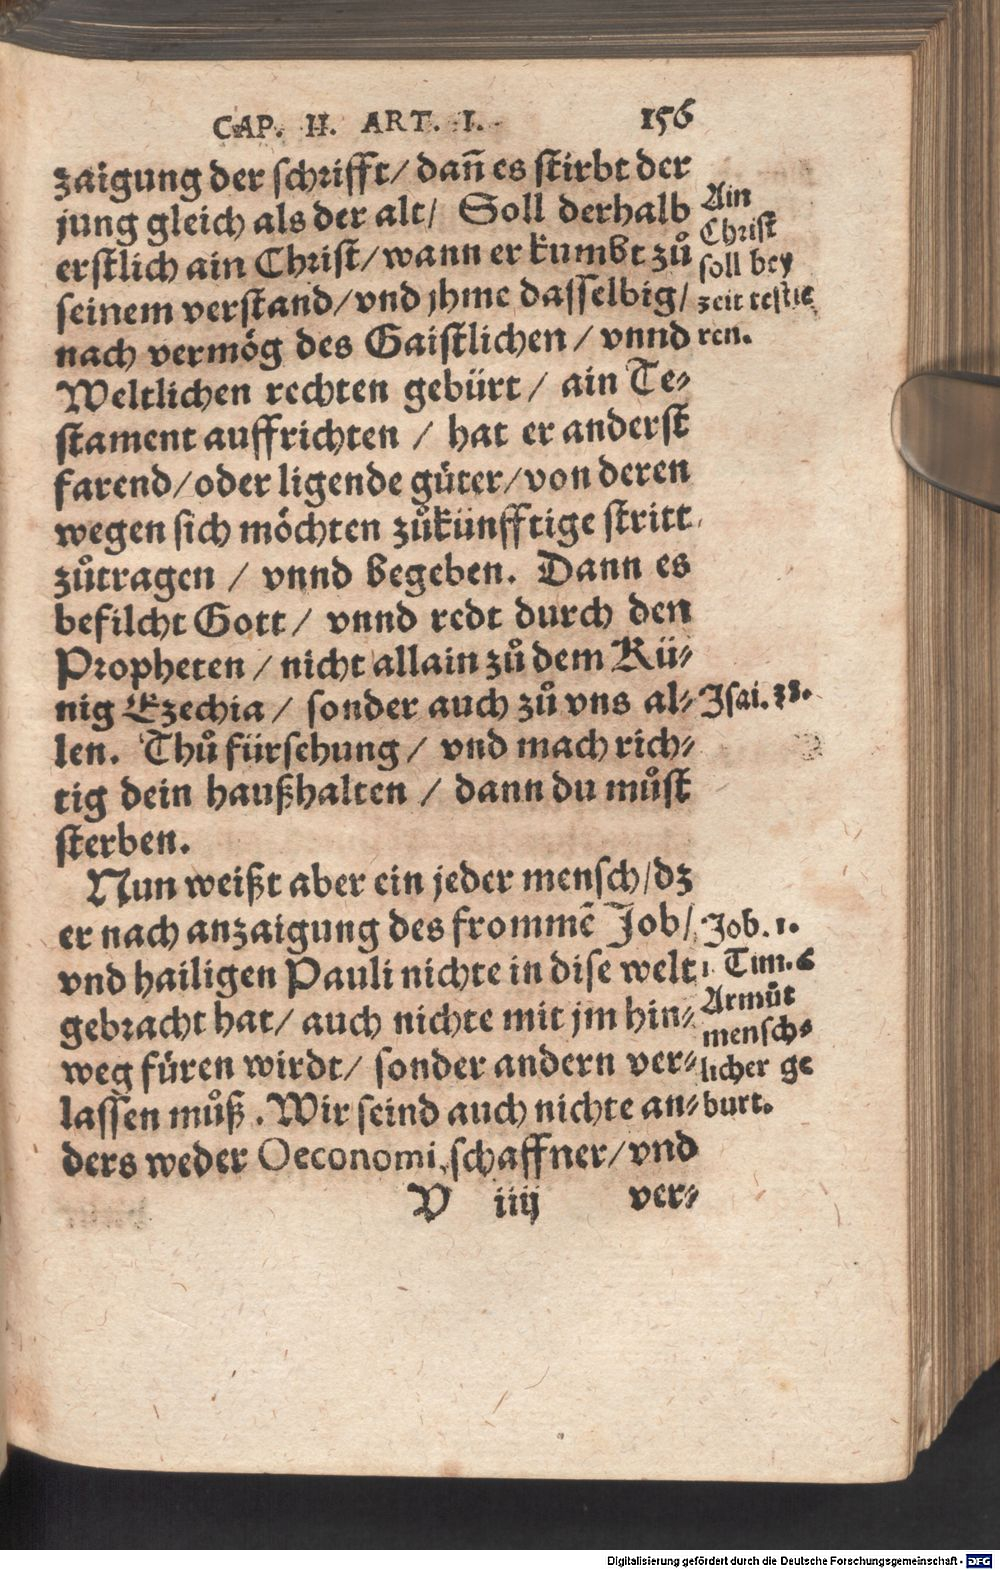 CAP. II. ART. I. 156
zaigung der schrifft / dañ es stirbt der
jung gleich als der alt / Soll derhalb
erstlich ain Christ / wann er kumbt zů
seinem verstand / vnd jhme dasselbig /
nach vermög des Gaistlichen / vnnd
Weltlichen rechten gebürt / ain Te⸗
stament auffrichten / hat er anderst
farend / oder ligende güter / von deren
wegen sich möchten zůkünfftige stritt
zůtragen / vnnd begeben. Dann es
befilcht Gott / vnnd redt durch den
Propheten / nicht allain zů dem Kü⸗
nig Ezechia / sonder auch zů vns al⸗
len. Thů fürsehung / vnd mach rich⸗
tig dein haußhalten / dann du můst
sterben.
Nun weißt aber ein jeder mensch / dz
er nach anzaigung des frommẽ Job /
vnd hailigen Pauli nichte in dise welt
gebracht hat / auch nichte mit jm hin⸗
weg füren wirdt / sonder andern ver⸗
lassen můß. Wir seind auch nichte an⸗
ders weder Oeconomi, schaffner / vnd
V iiij ver⸗
Ain
Christ
soll bey
zeit testie
ren.
Isai. 38.
Job. 1.
1 Tim. 6
Armůt
mensch⸗
licher ge
burt.
Digitalisierung gefördert durch die Deutsche Forschungsgemeinschaft - DFG